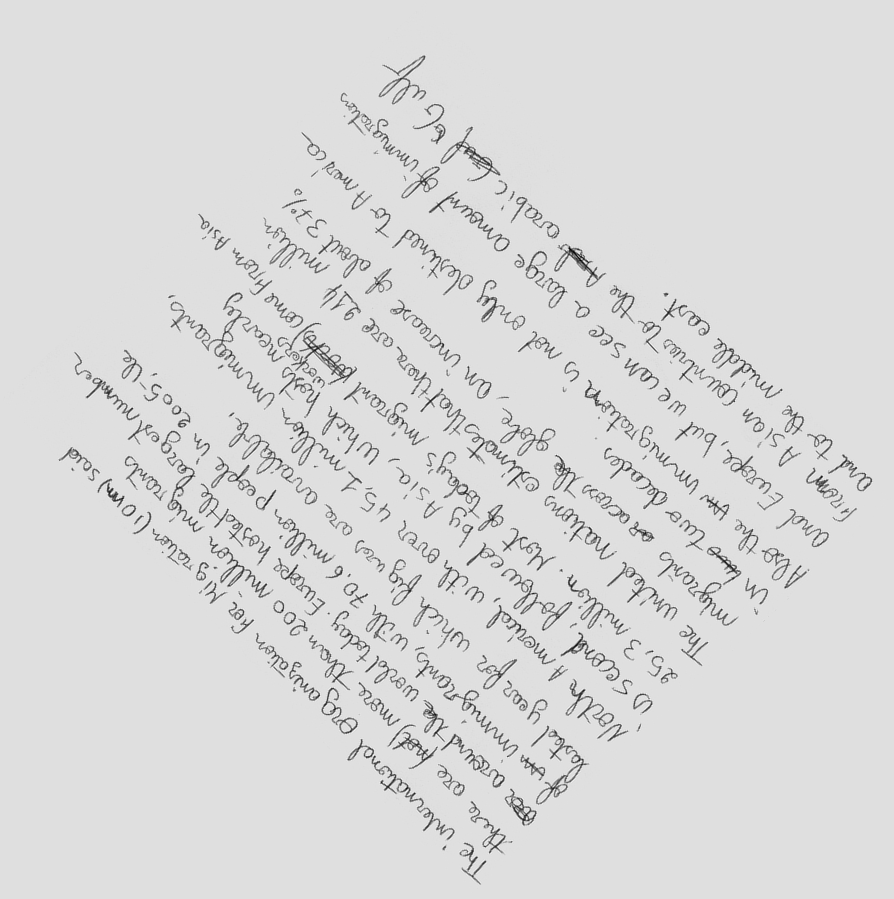 The international Organization for Migration (IOM) said
there are more than 200 million migrants
around the world today. Europe hosted the largest number
of immigrants, with 70,6 million people in 2005, the
lasted year for which figures are available,
North America, with over 45,1 million immigrants,
is second, followed by Asia, which hosts nearly
25,3 million. Most of today's migrant workers come from Asia
The united nations estimates that there are 214 million
migrants across the globe, an increase of about 37%
in two decades
Also the immigration is not only destined to America
and Europe, but we can see a large amount of immigration
from Asian countries to the arabic Gulf
and to the middle east.